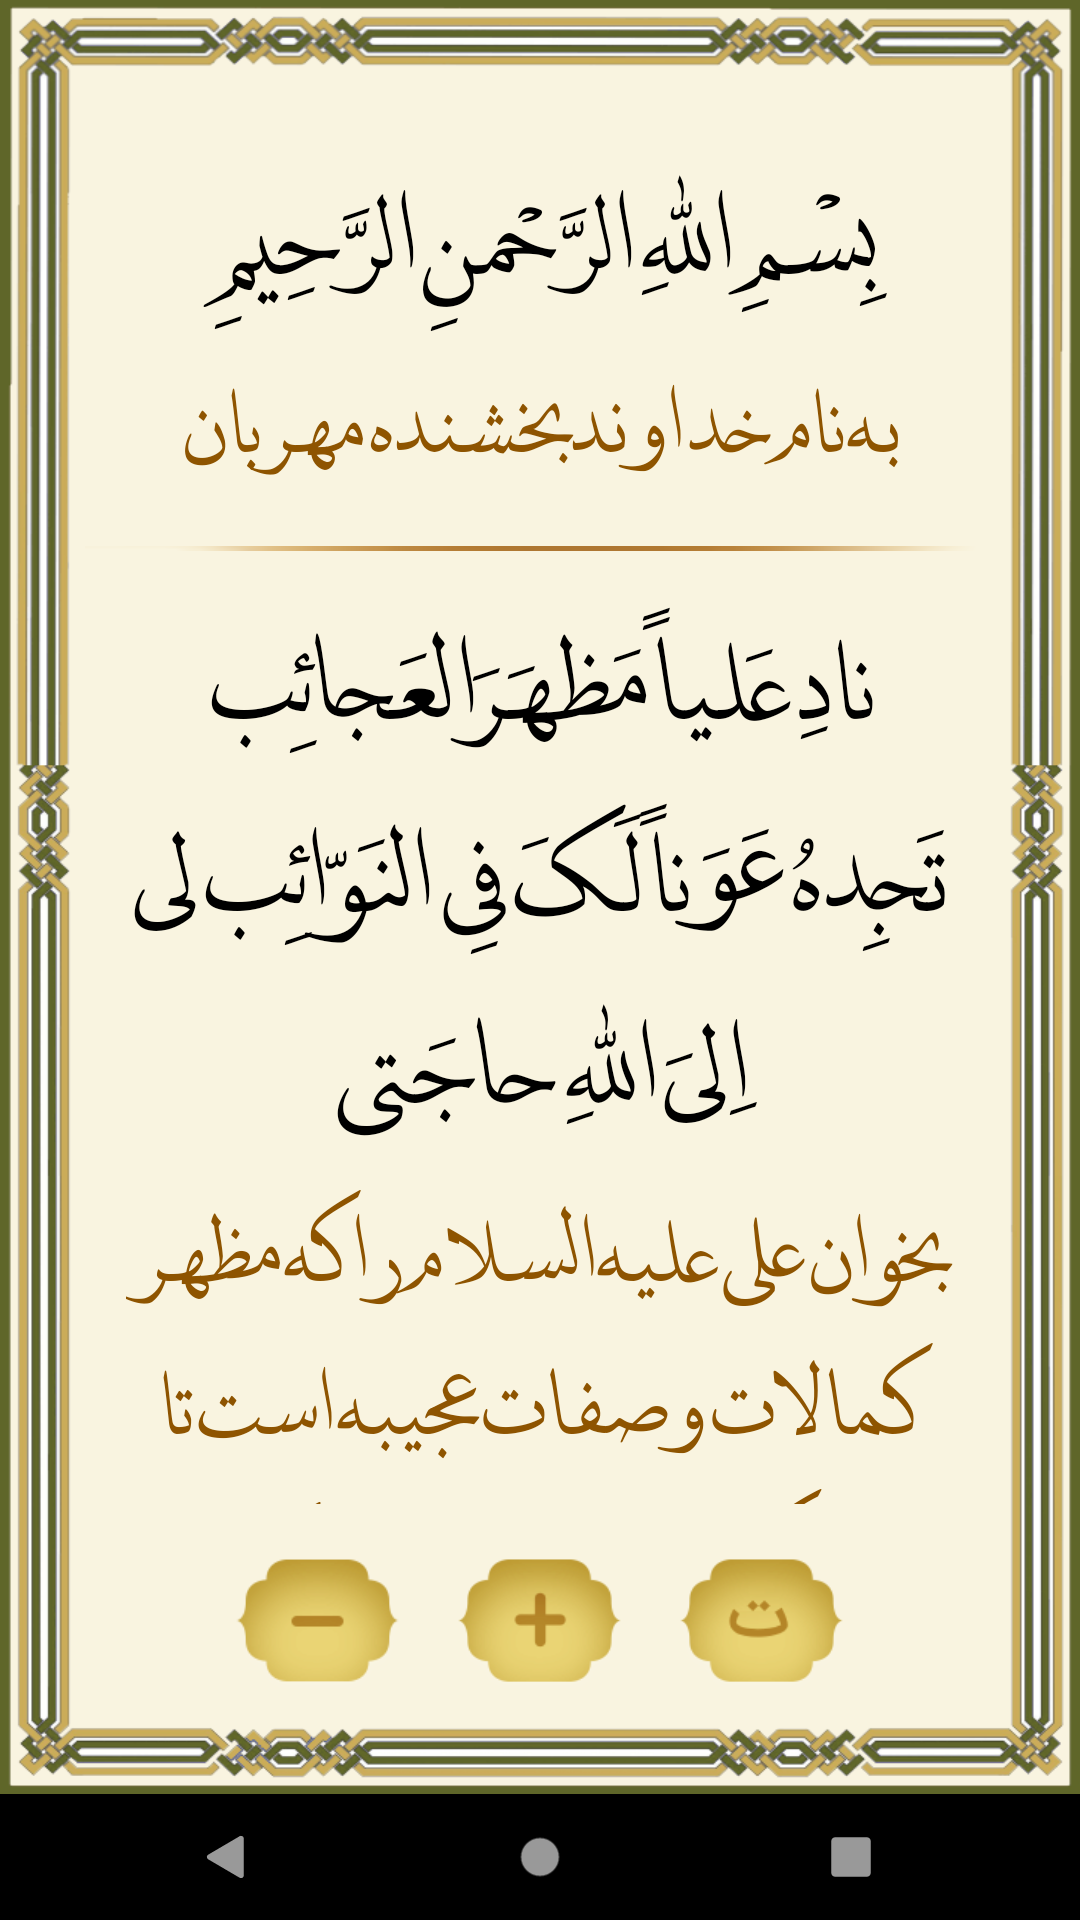 بِسْمِ اللهِ الرَّحْمنِ الرَّحِیمِ
به نام خداوند بخشنده مهربان
نادِ عَلیاً مَظهَرَ العَجائِب
تَجِدهُ عَوَناً لَکَ فِی النَوّائِب لی
اِلیَ اللهِ حاجَتی
بخوان علی علیه السلام را که مظهر
کمالات و صفات عجیبه است تا
−
+
ت